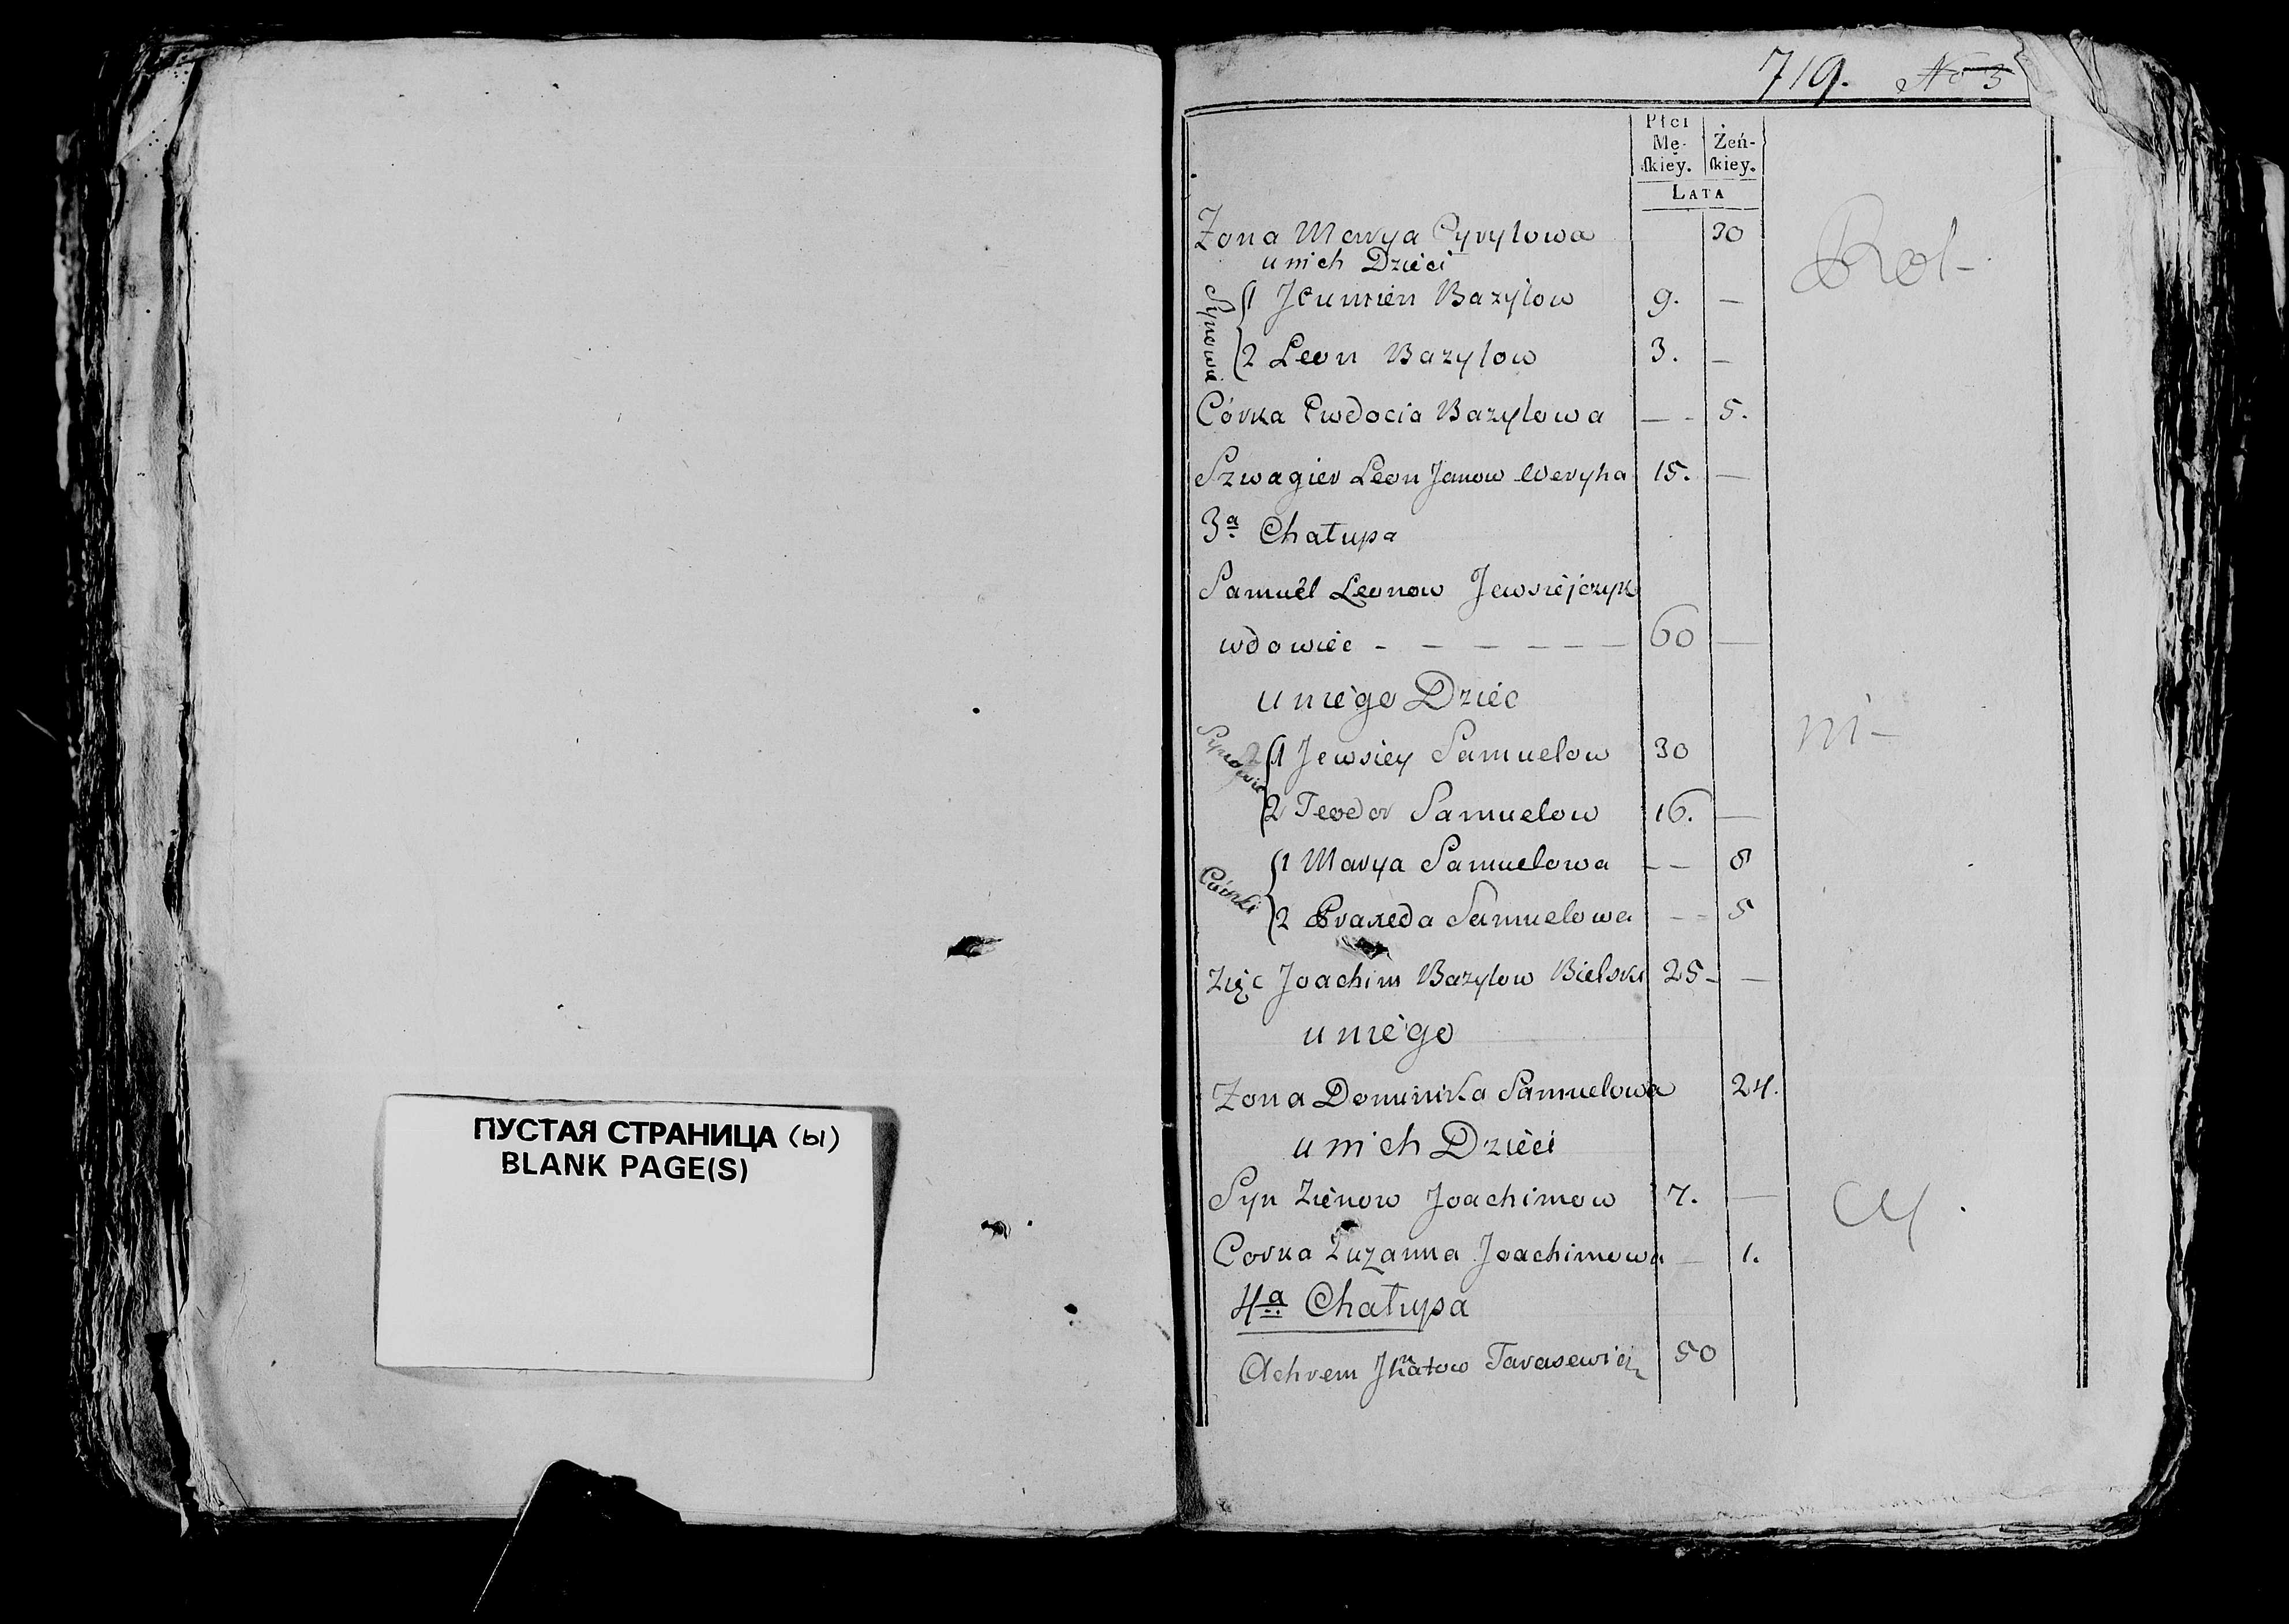 ПУСТАЯ СТРАНИЦА (ы)
BLANK PAGE(S)
719. No 3
Płci
Mę- Żeń-
skiey. skiey.
LATA
Żona Marya Cyrylowa 30
u nich Dzieci
Synowie
1 Jeumien Bazylow 9. —
2 Leon Bazylow 3. —
Córka Ewdocia Bazylowa — - 5.
Szwagier Leon Janow Weryha 15. —
3a Chałupa
Samuel Leonow Jewsiejczyk
wdowiec - — — — — — — 60 —
u niego Dziec
Synowie
1 Jewsiey Samuelow 30
2 Teodor Samuelow 16. —
Córki
1 Marya Samuelowa — — 8
2 Praxeda Samuelowa - - 5
Zięć Joachim Bazylow Bielski 25 - —
u niego
Żona Dominika Samuelowa 24.
u nich Dzieci
Syn Zienow Joachimow 7. —
Corka Zuzanna Joachimowa — 1.
4a Chałupa
Achrem Jhnatow Tarasewicz 50